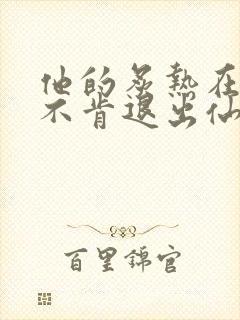 他的炙热在
不肯退出仙
百里锦官